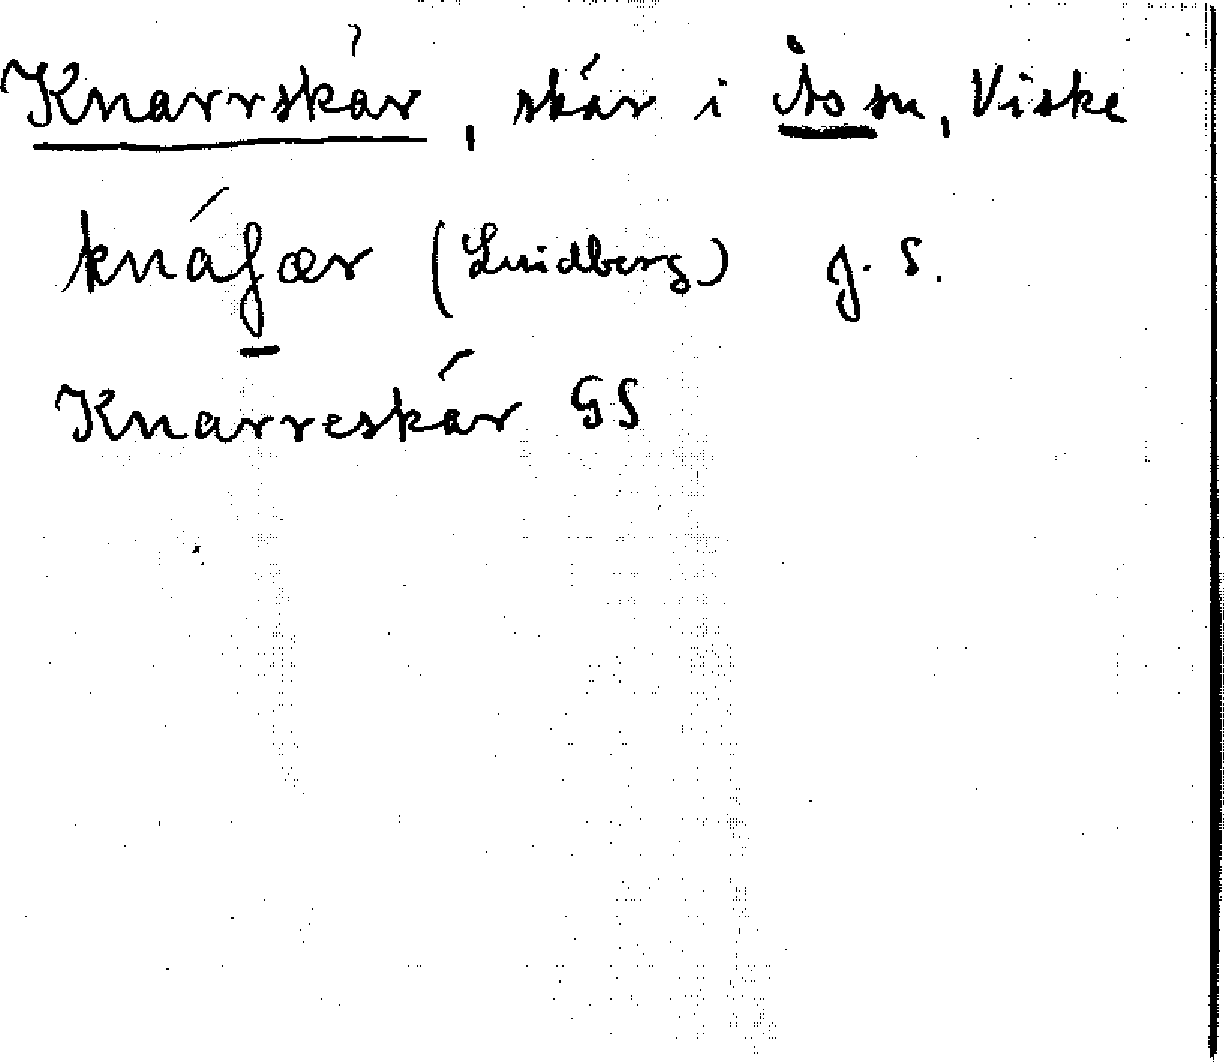 Knarrskär, skär i Ås sn, Viske
(Lindberg) J. S.
Knarreskär GS